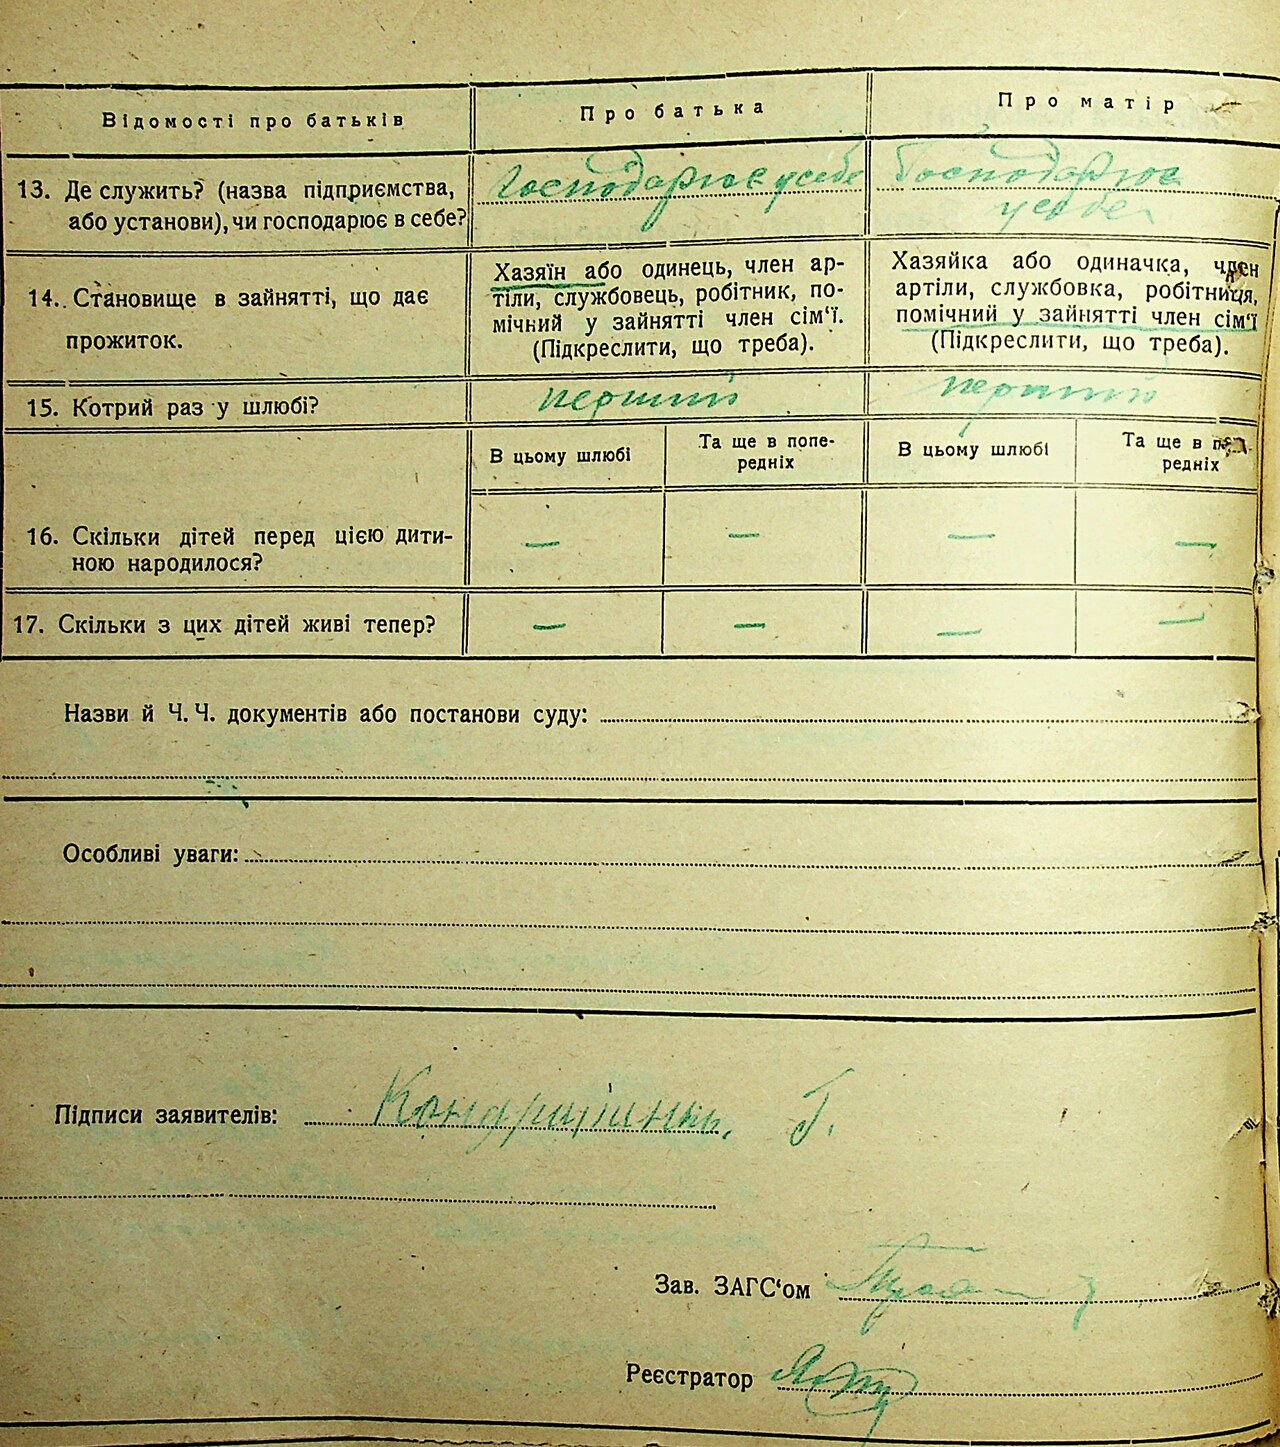 Відомості про батьків
Про батька
Про матір
13. Де служить? (назва підприємства,
або установи), чи господарює в себе?
Господарює у себе
Господарює
у себе
14. Становище в зайнятті, що дає
прожиток.
Хазяїн або одинець, член ар-
тіли, службовець, робітник, по-
мічний у зайнятті член сім‘ї.
(Підкреслити, що треба).
Хазяйка або одиначка, член
артіли, службовка, робітниця,
помічний у зайнятті член сім‘ї
(Підкреслити, що треба).
15. Котрий раз у шлюбі?
перший
перший
В цьому шлюбі
Та ще в попе-
редніх
В цьому шлюбі
Та ще в попе-
редніх
16. Скільки дітей перед цією дити-
ною народилося?
—
—
—
—
17. Скільки з цих дітей живі тепер?
—
—
—
—
Назви й Ч. Ч. документів або постанови суду:
Особливі уваги:
Підписи заявителів:
Г.
Зав. ЗАГС‘ом
Реєстратор